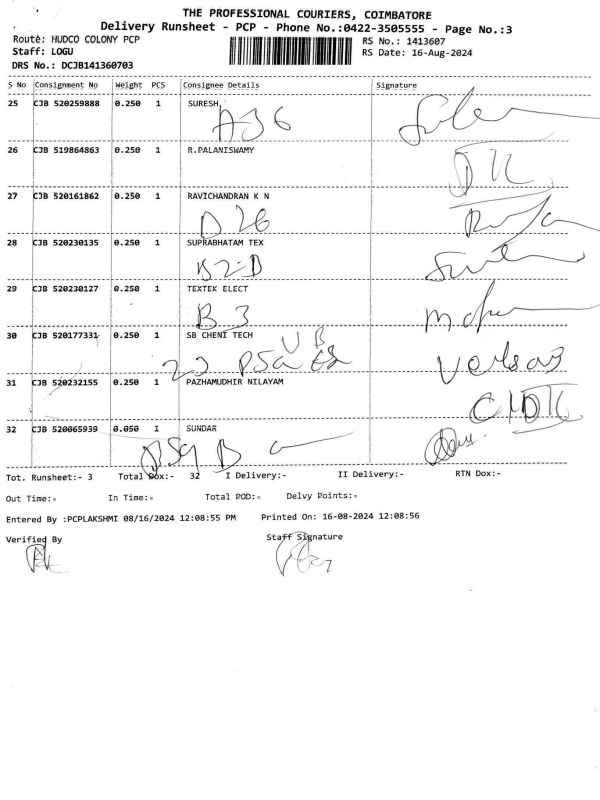 THE PROFESSIONAL COURIERS, COIMBATORE
Delivery Runsheet - PCP - Phone No.:0422-3505555 - Page No.:3
Route: HUDCO COLONY PCP
Staff: LOGU
DRS No.: DCJB141360703
RS No.: 1413607
RS Date: 16-Aug-2024
S No Consignment No Weight PCS Consignee Details Signature
25 CJB 520259888 0.250 1 SURESH
A36
26 CJB 519864863 0.250 1 R.PALANISWAMY
27 CJB 520161862 0.250 1 RAVICHANDRAN K N
D 26
28 CJB 520230135 0.250 1 SUPRABHATAM TEX
29 CJB 520230127 0.250 1 TEXTEK ELECT
B 3
30 CJB 520177331 0.250 1 SB CHENI TECH
31 CJB 520232155 0.250 1 PAZHAMUDHIR NILAYAM
32 CJB 520065939 0.050 1 SUNDAR
Tot. Runsheet:- 3 Total Dox:- 32 I Delivery:- II Delivery:- RTN Dox:-
Out Time:- In Time:- Total POD:- Delvy Points:-
Entered By :PCPLAKSHMI 08/16/2024 12:08:55 PM Printed On: 16-08-2024 12:08:56
Verified By Staff Signature